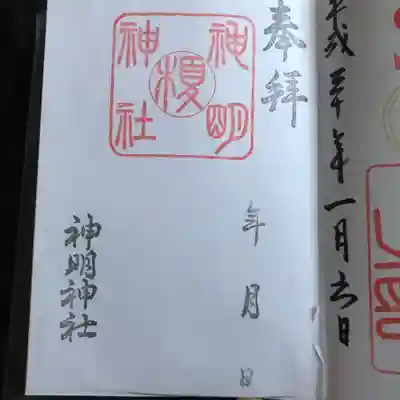 奉拝
神明
榎
神社
年 月 日
神明神社
平成三十年一月六日